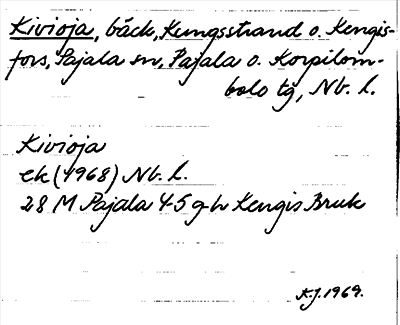 Kivioja, bäck, Kungsstrand o. Kengis-
fors, Pajala sn, Pajala o. Korpilom-
bolo tg, Nb. l.
Kivioja
ek (1968) Nb. l.
28 M Pajala 4-5 g-h Kengis Bruk
K.J. 1969.